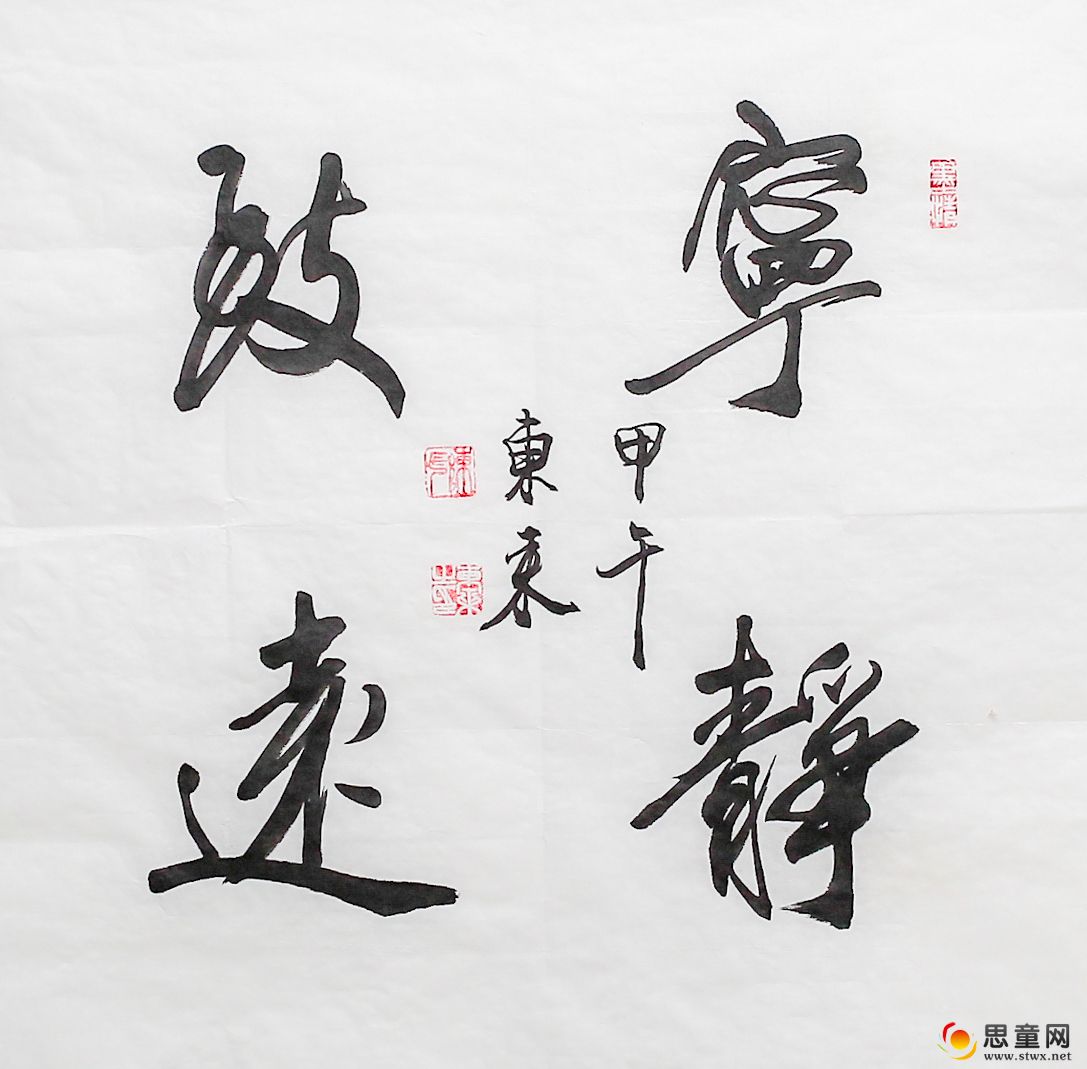 寧靜
致遠
甲午
東來
思童网
www.stwx.net